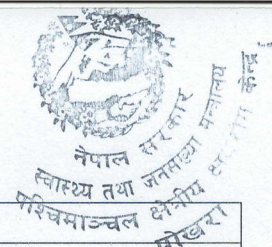 नेपाल सरकार
स्वास्थ्य तथा जनसंख्या मन्त्रालय
पश्चिमाञ्चल क्षेत्रीय केन्द्र
पोखरा